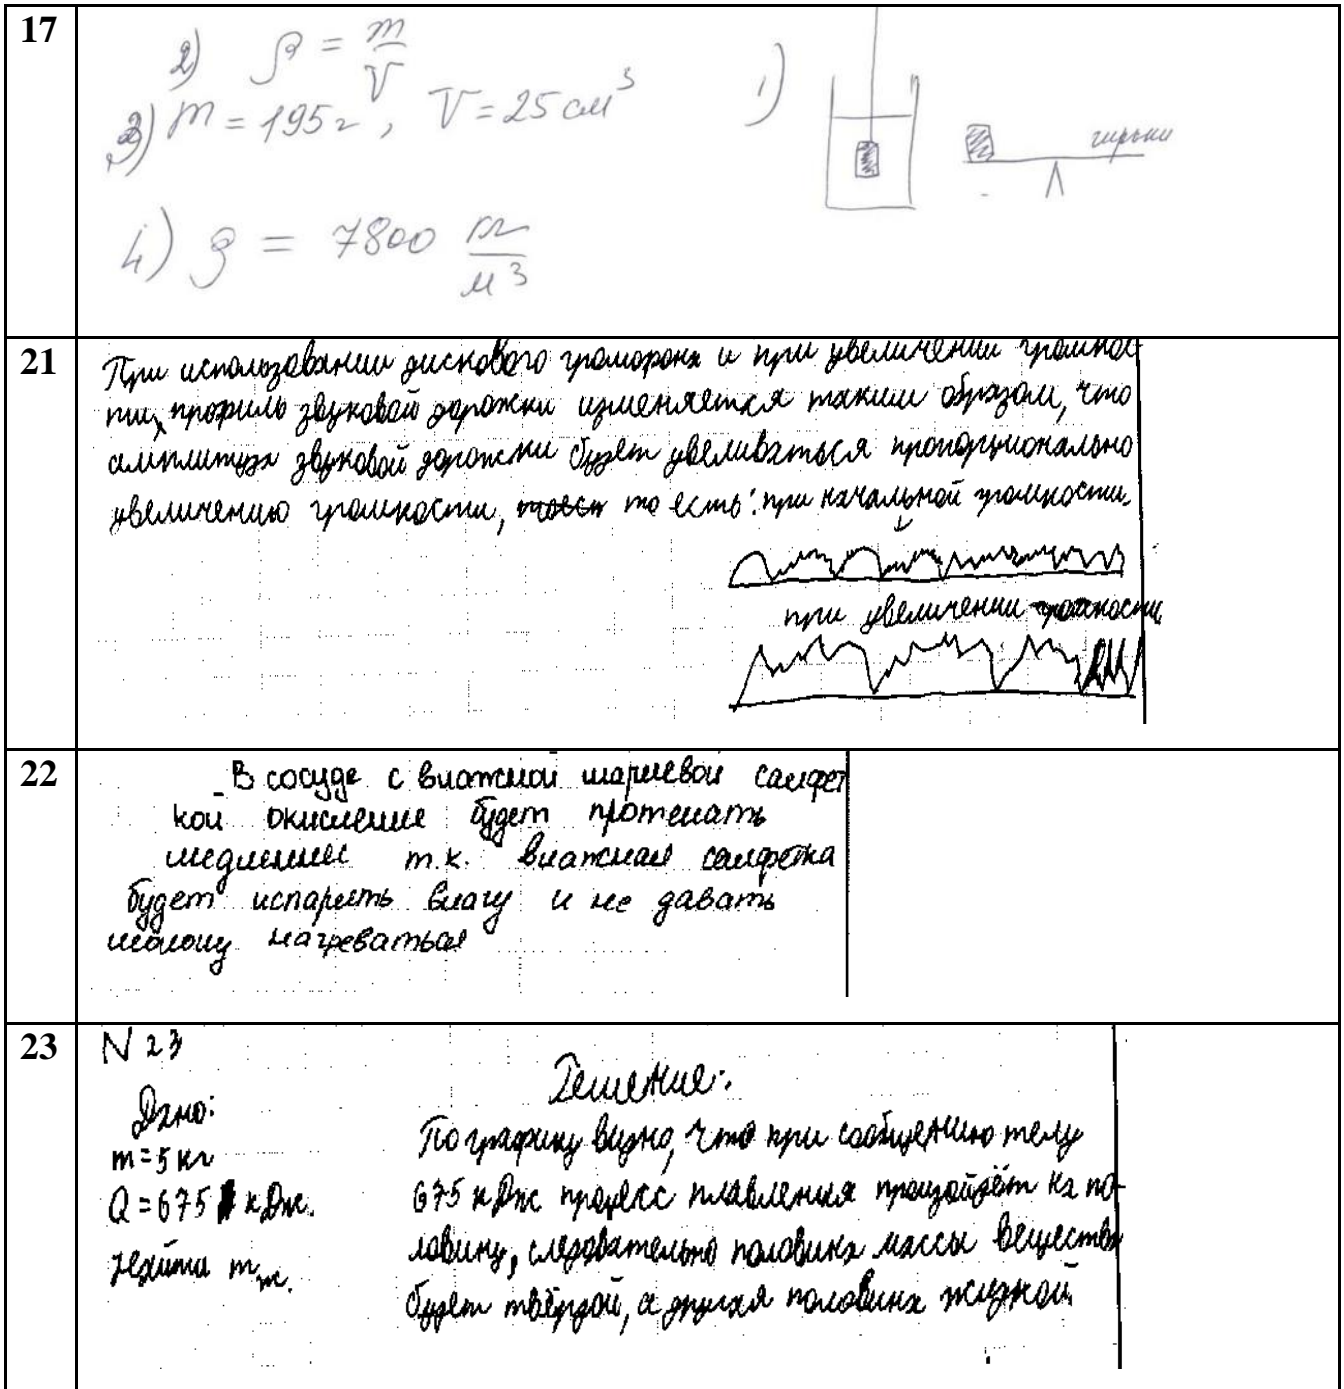 17
2) ρ = m/V
3) m = 195 г, V = 25 см³
4) ρ = 7800 кг/м³
1)
гирьки
21
При использовании дискового граммофона и при увеличении громкос-
ти, профиль звуковой дорожки изменяется таким образом, что
амплитуда звуковой дорожки будет увеливаться пропорционально
увеличению громкости, то есть: при начальной громкости.
при увеличении громкости
22
В сосуде с влажной марлевой салфет
кой окисление будет протекать
медленнее т.к. влажная салфетка
будет испарять влагу и не давать
молоку нагреваться
23
N 23
Дано:
m = 5 кг
Q = 675 кДж.
Найти mж.
Решение:
По графику видно, что при сообщению телу
675 кДж процесс плавления произойдёт на по-
ловину, следовательно половина массы вещества
будет твёрдой, а другая половина жидкой.